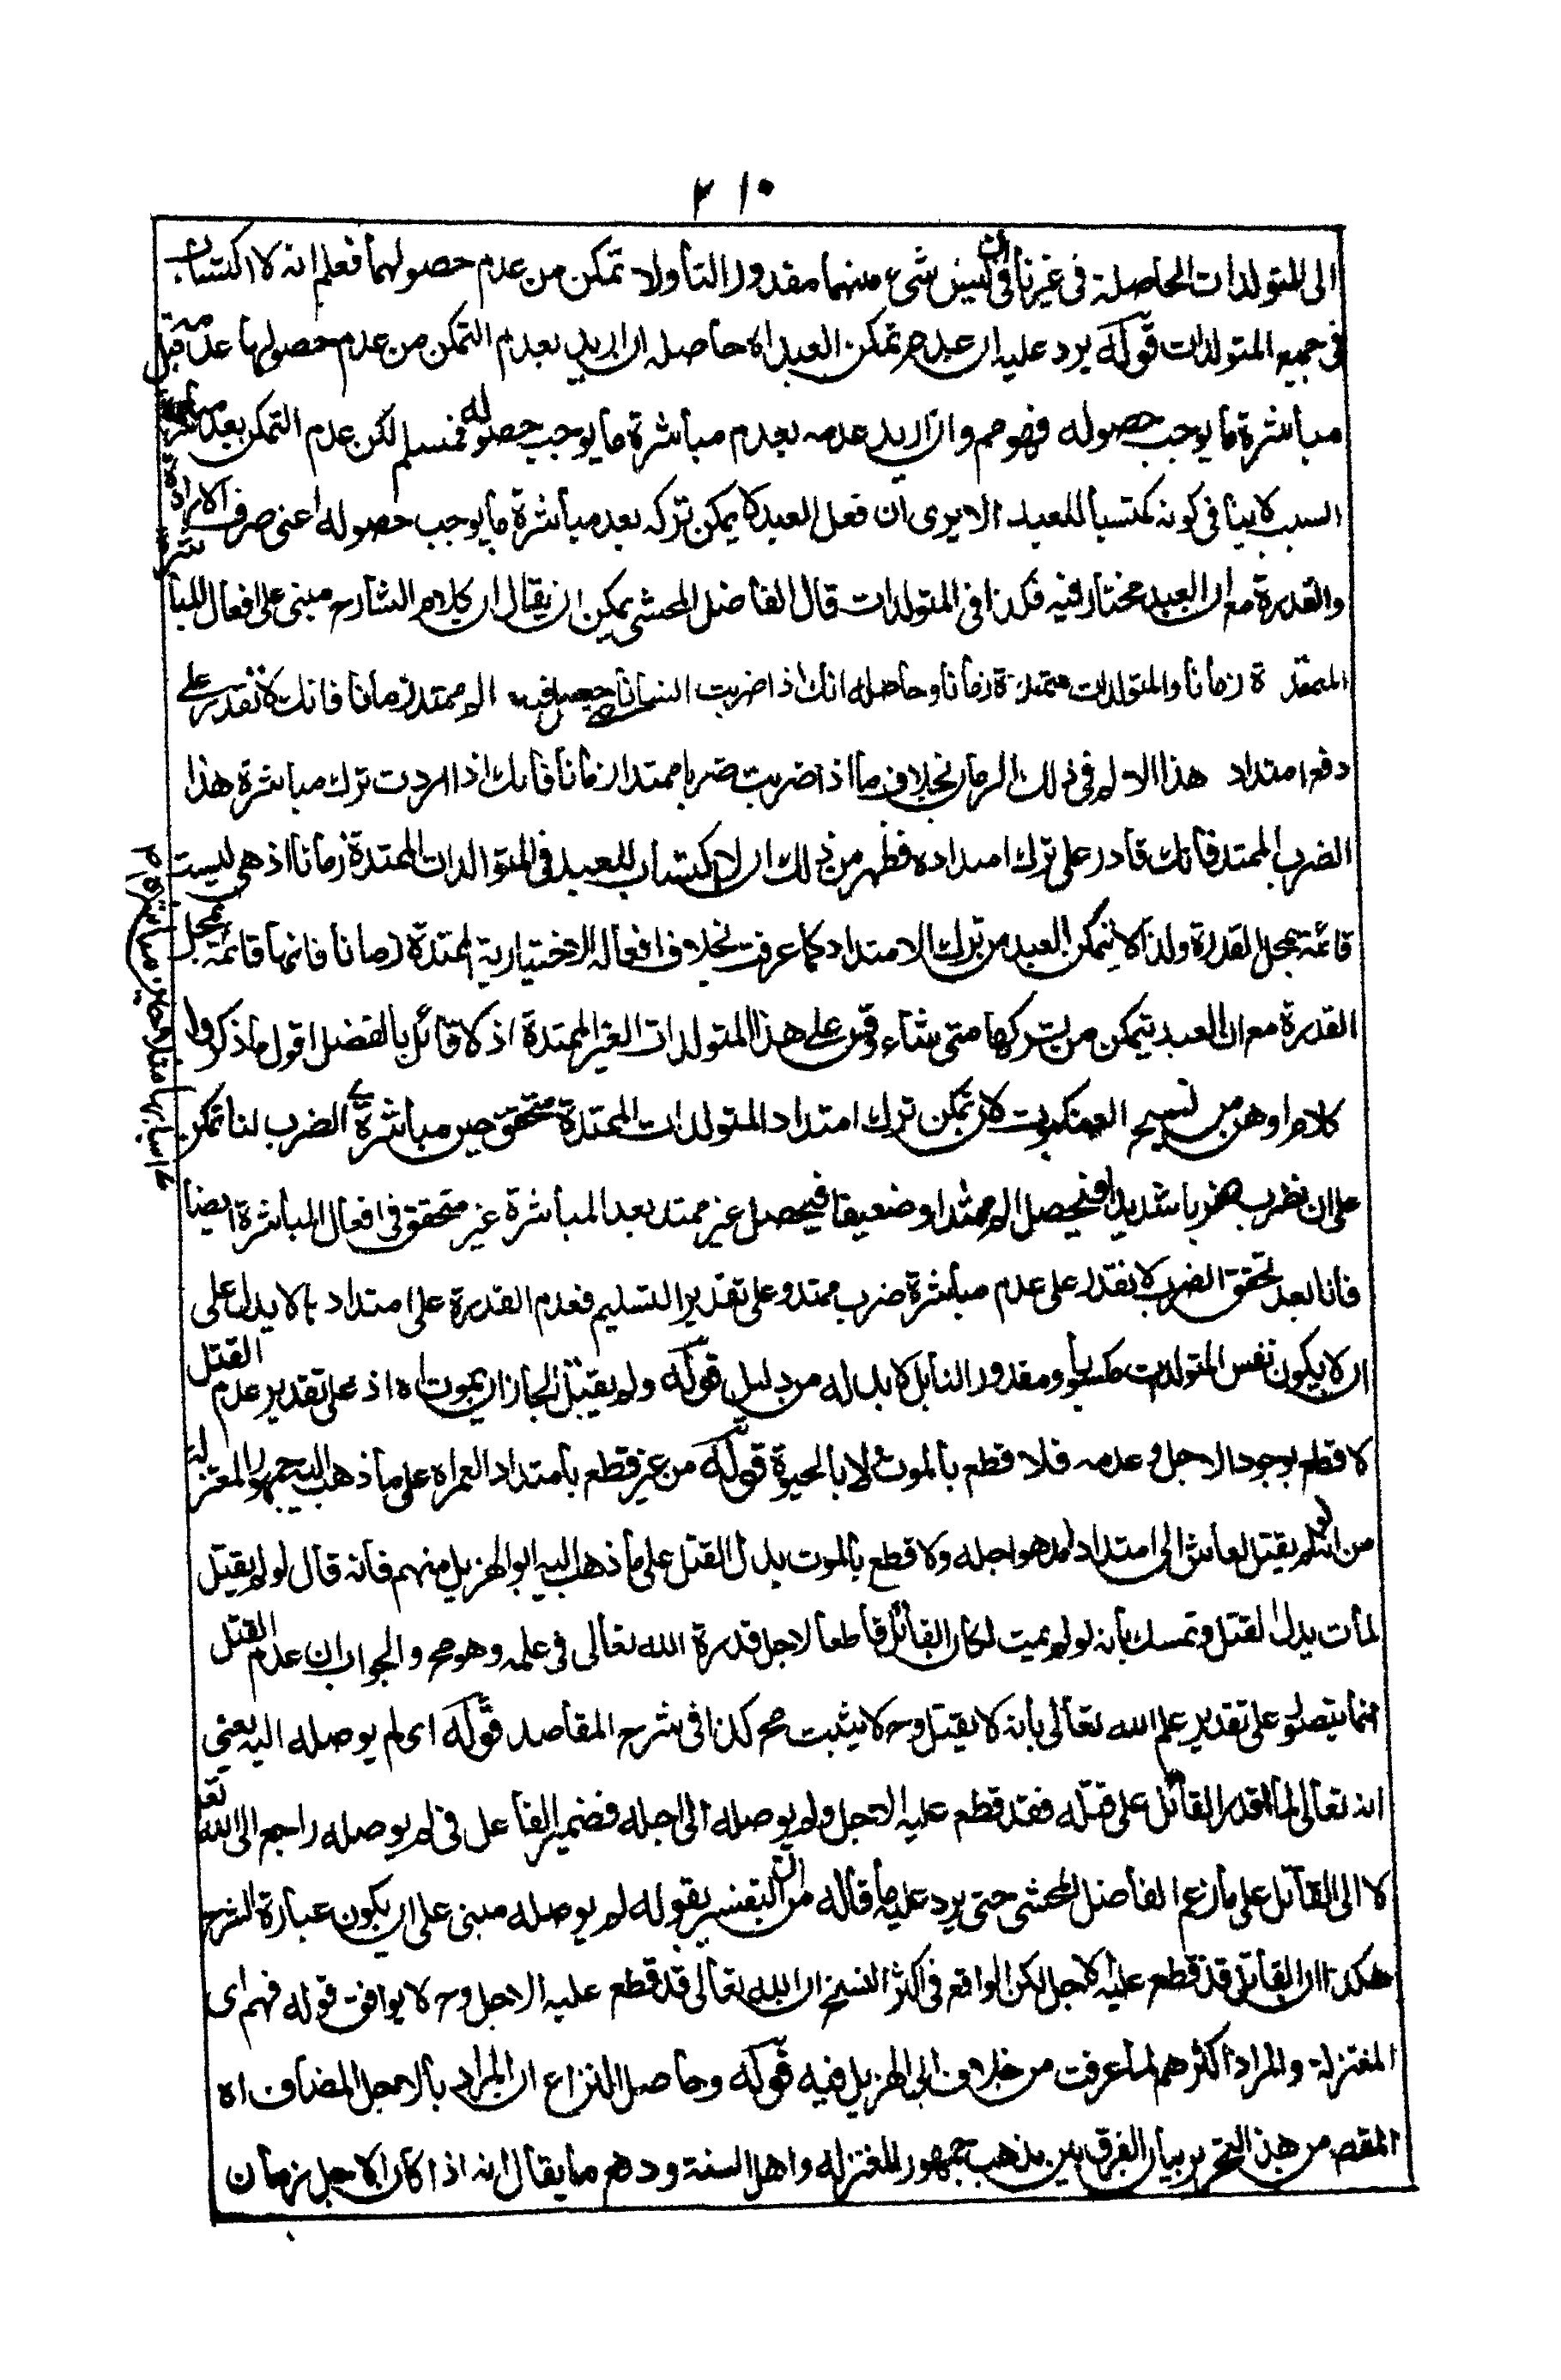 ٢١٠
الى المتولدات الحاصلة فى غيرنا فى ان ليس شىء منهما مقدورا لنا ولا تمكن من عدم حصولهما فعلم انه لا اكتساب
فى جميع المتولدات قوله يرد عليه ان عدم تمكن العبد اه حاصله ان اريد بعدم التمكن من عدم حصولها عدمه قبل
مباشرة ما يوجب حصوله فهو مم وان اريد عدمه بعدم مباشرة ما يوجب حصوله فمسلم لكن عدم التمكن بعد مباشرة
السبب لا ينافى كونه مكتسبا للعبد الا يرى ان فعل العبد لا يمكن تركه بعد مباشرة ما يوجب حصوله اعنى صرف الارادة
والقدرة مع ان العبد مختار فيه فكذا فى المتولدات قال الفاضل المحشى يمكن ان يقال ان كلام الشارح مبنى على افعال المباشرة
الممتدة زمانا والمتولدات ممتدة زمانا وحاصله انك اذا ضربت انسانا حصل فيه الم ممتد زمانا فانك لا تقدر على
دفع امتداد هذا الالم فى ذلك الزمان بخلاف ما اذا ضربت ضربا ممتدا زمانا فانك اذا اردت ترك مباشرة هذا
الضرب الممتد فانك قادر على ترك امتداده فظهر من ذلك ان لا اكتساب للعبد فى المتوالدات الممتدة زمانا اذ هى ليست
قائمة بمحل القدرة ولذا لا يتمكن العبد من ترك الامتداد كما عرفت بخلاف افعاله الاختيارية الممتدة زمانا فانها قائمة بمحل
القدرة مع ان العبد يتمكن من تركها متى شاء وقس على هذا المتولدات الغير الممتدة اذ لا قائل بالفضل اقول ما ذكروا
كلام اوهن من نسيج العنكبوت لان تمكن ترك امتداد المتولدات الممتدة متحقق حين مباشرة الضرب لنا تمكن
على ان نضرب ضربا شديدا فيحصل الم ممتد او ضعيفا فيحصل غير ممتد بعد المباشرة غير متحقق فى افعال المباشرة ايضا
فانا بعد تحقق الضرب لا نقدر على عدم مباشرة ضرب ممتد وعلى تقدير التسليم فعدم القدرة على امتدادها لا يدل على
ان لا يكون نفس المتولدات مكسوبا ومقدورا لنا بل لا بد له من دليل قوله ولو لم يقتل لجاز ان يموت اه اذ على تقدير عدم القتل
لا قطع بوجود الاجل وعدمه فلا قطع بالموت ولا بالحيوة قوله من غير قطع بامتداد العمر اه على ما ذهب اليه جمهور المعتزلة
من انه لو لم يقتل لعاش الى امتداد امد هو اجله ولا قطع بالموت بدل القتل على ما ذهب اليه ابو الهزيل منهم فانه قال لو لم يقتل
لمات بدل القتل وتمسك بانه لو لم يميت لكان القاتل قاطعا لاجل قدرة الله تعالى فى علمه وهو مح والجواب ان عدم القتل
انما يتصور على تقدير علم الله تعالى بانه لا يقتل وح لا يثبت مح كذا فى شرح المقاصد قوله اى لم يوصله اليه يعنى
انه تعالى لما اقدر القاتل على قتله فقد قطع عليه الاجل ولم يوصله الى اجله فضمير الفاعل فى لم يوصله راجع الى الله تعر
لا الى القاتل على ما زعم الفاضل المحشى حتى يرد عليه ما قاله من ان التفسير بقوله لم يوصله مبنى على ان يكون عبارة الشرح
هكذا ان القاتل قد قطع عليه لاجل لكن الواقع فى اكثر النسخ ان الله تعالى قد قطع عليه الاجل وح لا يوافق قوله فهم اى
المغتزلة والمراد اكثرهم لما عرفت من خلاف ابى الهزيل فيه قوله وحاصل النزاع ان المراد بالاجل المضاف اه
المقصر من هذ التحرير بيان الفرق بين مذهب جمهور المغتزله واهل السنة ودفع ما يقال انه اذا كان الاجل زمان